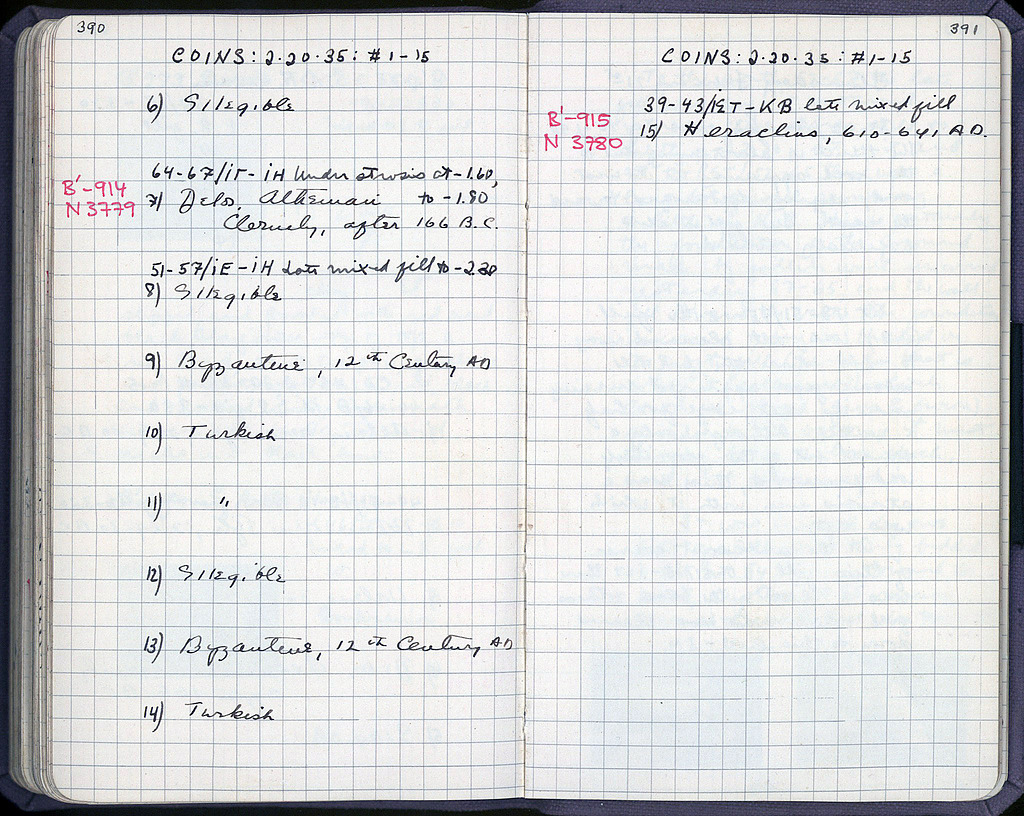 390
COINS: 2·20·35: #1-15
6) Illegible
64-67/ΙΓ-ΙΗ Under strosis at -1.60,
B'-914
N 3779
7) Delos, Athenian to -1.80
Cleruchy, after 166 B.C.
51-57/ΙΕ-ΙΗ Late mixed fill to -2.20
8) Illegible
9) Byzantine, 12th Century AD
10) Turkish
11) "
12) Illegible
13) Byzantine, 12th Century AD
14) Turkish
391
COINS: 2·20·35: #1-15
39-43/ΙΣΤ-ΚΒ late mixed fill
B'-915
N 3780
15) Heraclius, 610-641 AD.